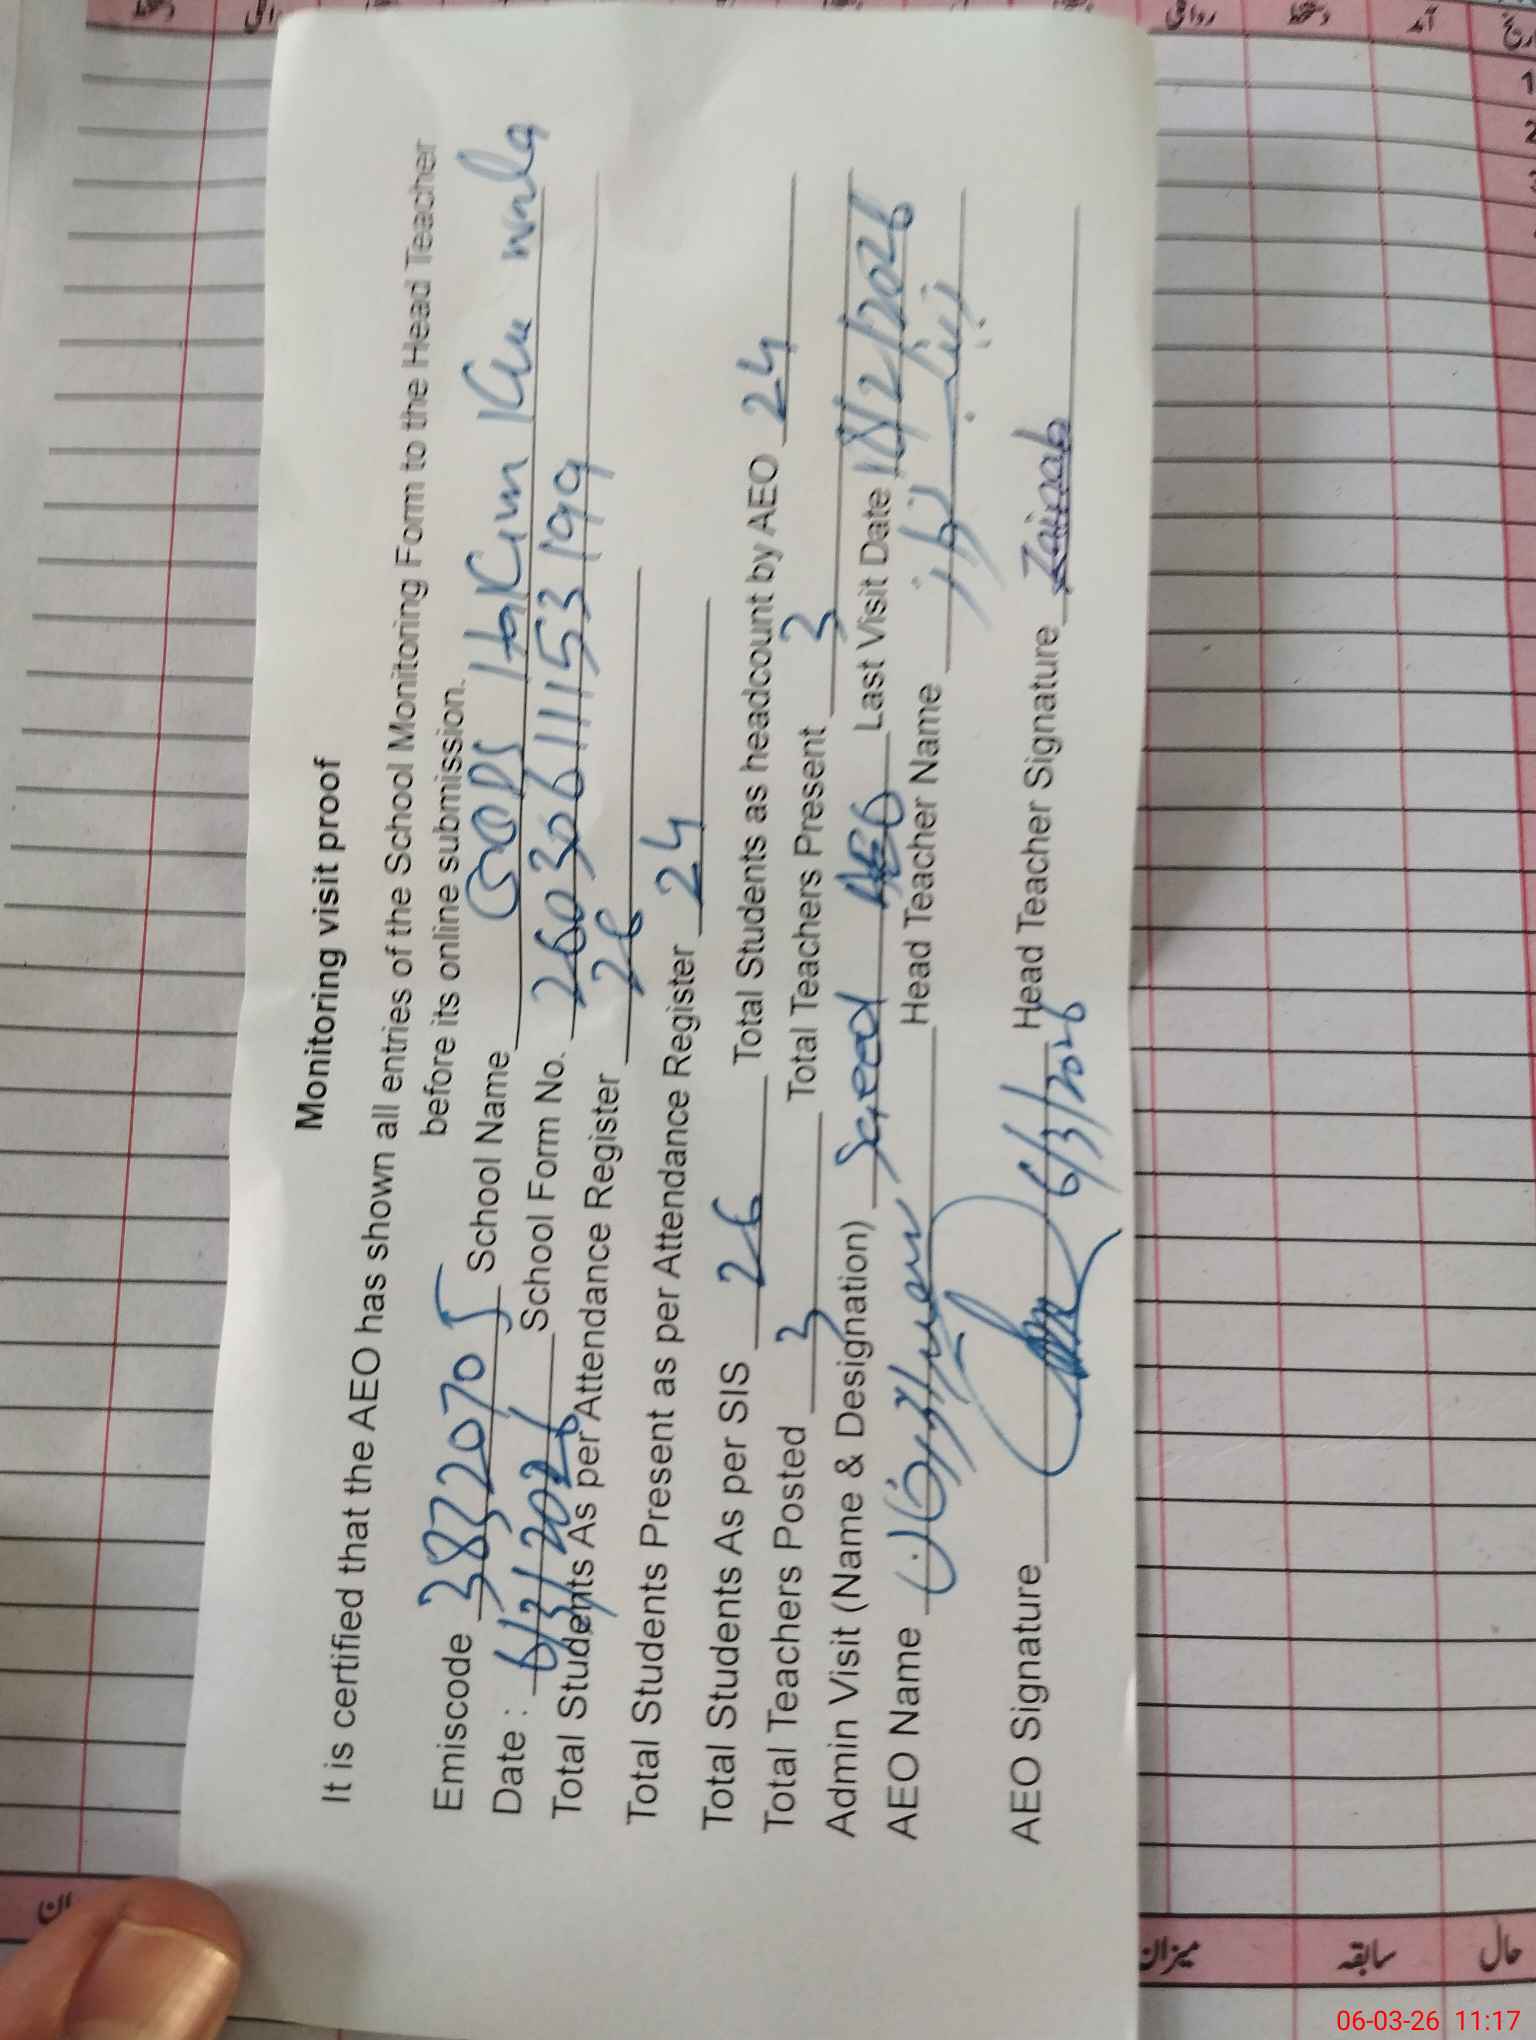 Monitoring visit proof
It is certified that the AEO has shown all entries of the School Monitoring Form to the Head Teacher
before its online submission.
Emiscode 38320705 School Name GOPS Hakim
Date : 6/3/2026 School Form No. 260306111153199
Total Students As per Attendance Register 26
Total Students Present as per Attendance Register 24
Total Students As per SIS 26 Total Students as headcount by AEO 24
Total Teachers Posted 3 Total Teachers Present 3
Admin Visit (Name & Designation) Saeed AEO Last Visit Date 18/2/2026
AEO Name Head Teacher Name
AEO Signature 6/3/2026 Head Teacher Signature Zainab
روانگی
دستخط
آمد
تاریخ
1
2
میزان
سابقہ
حال
06-03-26 11:17